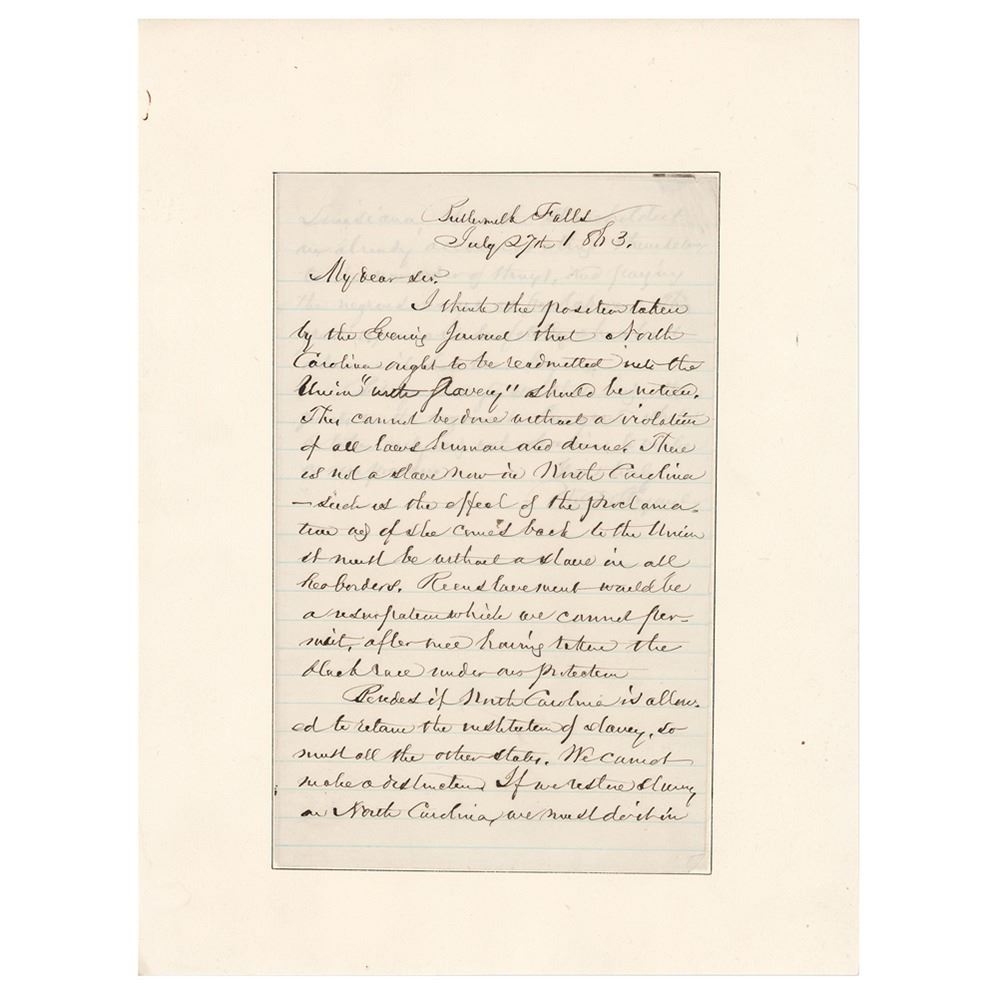 Buttermilk Falls
July 27th 1863.
My dear sir.
I think the position taken
by the Evening Journal that North
Carolina ought to be readmitted into the
Union "with slavery" should be noticed.
This cannot be done without a violation
of all laws human and divine. There
is not a slave now in North Carolina
— such is the effect of the proclama-
tion and if she comes back to the Union
it must be without a slave in all
her borders. Reenslavement would be
a usurpation which we cannot per-
mit, after once having taken the
black race under our protection
Besides if North Carolina is allow-
ed to retain the institution of slavery, so
must all the other states. We cannot
make a distinction. If we restore slavery
in North Carolina, we must do it in